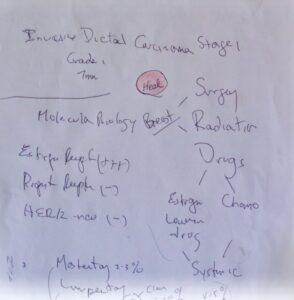 Invasive Ductal Carcinoma Stage 1
Grade 1
7mm
Heal
Surgery
Molecular Biology Breast
Radiation
Drugs
Estrogen Recptr (+++)
Progest Recptr (-)
HER/2-neu (-)
Estrogen
Lowering
drug
Chemo
Systemic
Mastectomy 2-3%
Lumpectomy